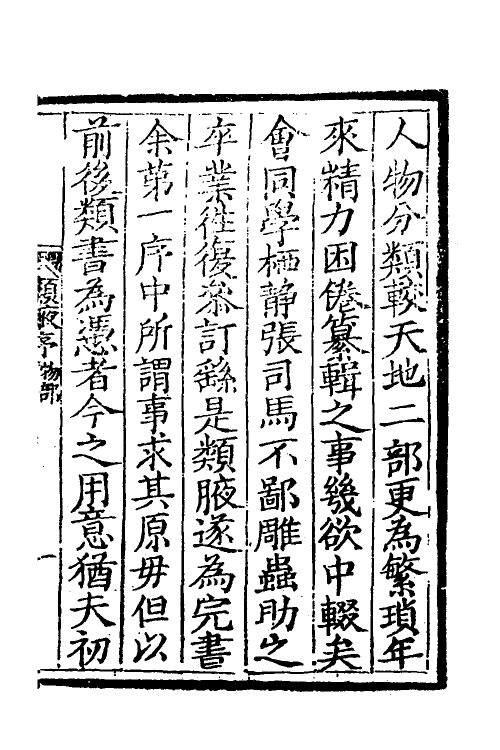 人物分類較天地二部更為繁瑣年
來精力困倦纂輯之事幾欲中輟矣
會同學栖静張司馬不鄙雕蟲助之
卒業徃復叅訂繇是類腋遂為完書
余第一序中所謂事求其原毋但以
前後類書為憑者今之用意猶夫初
類腋序 物部
一